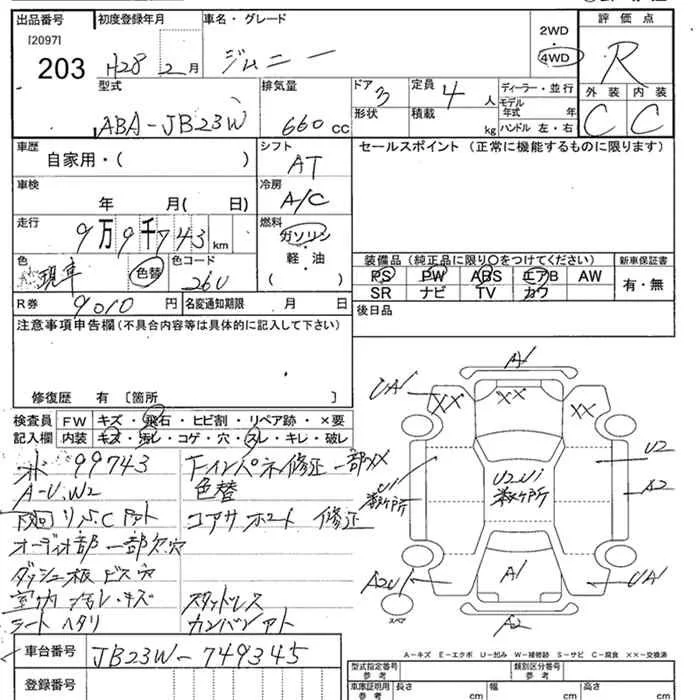 出品番号 初度登録年月 車名・グレード 評価点
[2097] 2WD
203 H28 2月 ジムニー 4WD R
型式 排気量 ドア 3 定員 4人 ディーラー・並行 外装 内装
ABA-JB23W 660cc 形状 積載 kg モデル年式 年 C C
ハンドル 左・右
車歴 自家用・( ) シフト AT セールスポイント (正常に機能するものに限ります)
車検 年 月( 日) 冷房 A/C
走行 9万9千743km 燃料 ガソリン
軽・油
( )
色 色替 色コード 26U
装備品 (純正品に限り○をつけてください) 新車保証書
PS PW ABS エアB AW 有・無
SR ナビ TV カワ
R券 9010円 名変通知期限 月 日 後日品
注意事項申告欄(不具合内容等は具体的に記入して下さい)
修復歴 有 [箇所
検査員 FW キズ・飛石・ヒビ割・リペア跡・×要
記入欄 内装 キズ・汚レ・コゲ・穴・スレ・キレ・破レ
99743
A-U,W2 色替
コアサポート 修正
オーディオ部一部欠穴
ダッシュ板ビス穴
室内汚レ・キズ スタッドレス
シートヘタリ
A1
UA1 XX XX XX
U2
U1 U2U1 A2
数ヶ所 数ヶ所
A2U1 A1 UA1
スペア A2
A-キズ E-エクボ U-凹み W-補修跡 S-サビ C-腐食 ××-交換済
車台番号 JB23W-749345
登録番号
型式指定番号 参考 類別区分番号 参考
車庫証明用 参考 長さ cm 幅 cm 高さ cm